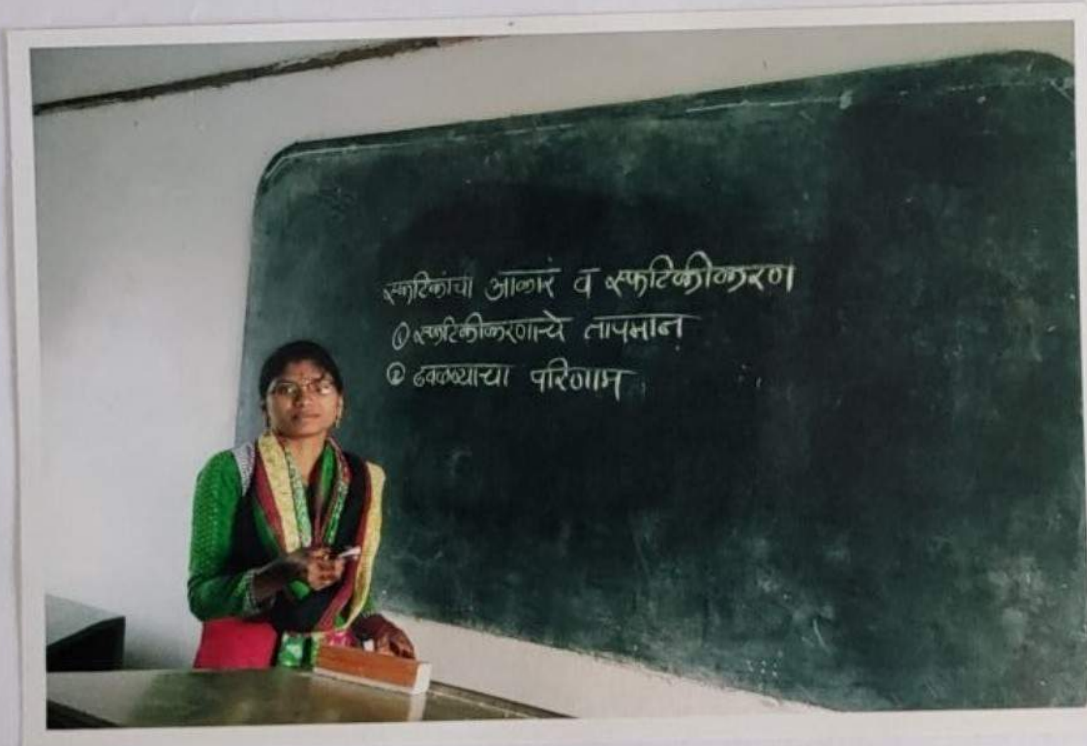 स्फटिकांचा आकार व स्फटिकीकरण
① स्फटिकीकरणाचे तापमान
② ढवळण्याचा परिणाम